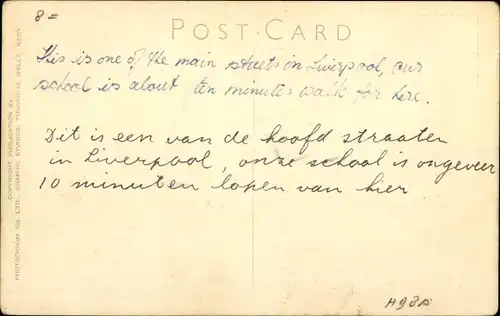 8=
POST CARD
This is one of the main streets in Liverpool, our
school is about ten minutes walk for here.
Dit is een van de hoofd straaten
in Liverpool, onze school is ongeveer
10 minuten lopen van hier
COPYRIGHT PUBLICATION BY
PHOTOCHROM CO. LTD., GRAPHIC STUDIOS, TUNBRIDGE WELLS, KENT